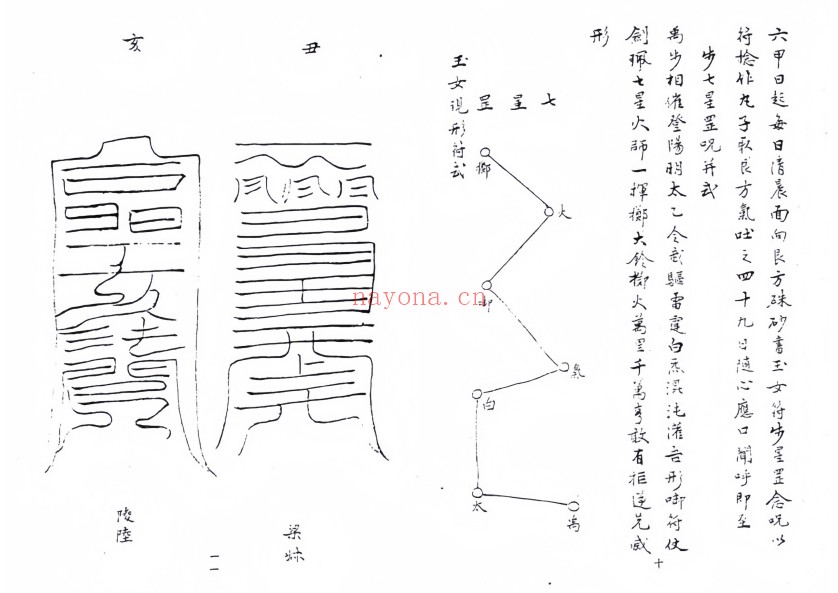 六甲日起每日清晨面向艮方硃砂書玉女符步星罡念呪以
符捻作丸子取艮方氣吐之四十九日隨心應口聞呼即至
步七星罡呪并式
禹步相催登陽明太乙令我驅雷電白炁混沌灌吾形啣符仗
劍珮七星火師一揮擲大鈴擲火萬里千萬
敢有拒逆先威
形
十
七星罡
擲
大
啣
氣
白
太
禹
玉女現形符式
丑
亥
陵陸
一一
nayona.cn